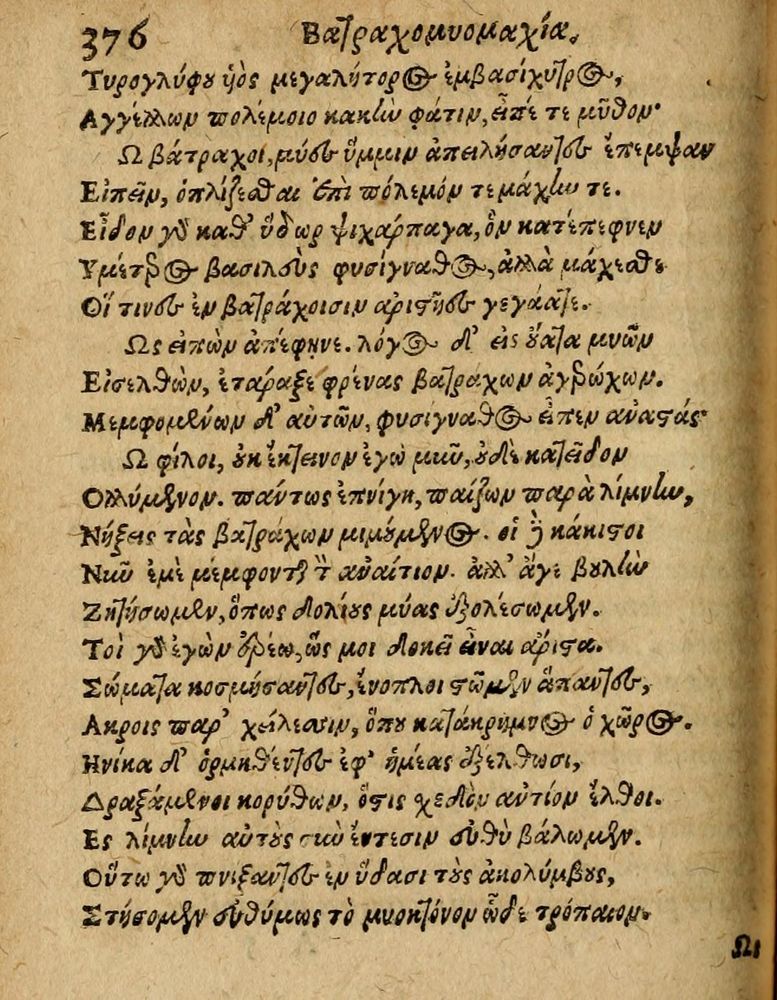 376 Βατραχομυομαχία.
Τυρογλύφου ὑὸς μεγαλήτορος ἐμβασίχυτρος,
Αγγέλλων πολέμοιο κακὴν φάτιν, εἶπέ τε μῦθον·
Ω βάτραχοι, μύες ὔμμιν ἀπειλήσαντες ἔπεμψαν
Εἰπεῖν, ὁπλίζεσθαι ἐπὶ πόλεμόν τε μάχην τε.
Εἶδον γὰρ καθ' ὕδωρ ψιχάρπαγα, ὃν κατέπεφνεν
Υμέτερος βασιλεὺς φυσίγναθος, ἀλλὰ μάχεσθε
Οἵ τινες ἐν βατράχοισιν ἀριστῆες γεγάατε.
Ως εἰπὼν ἀπέφηνε. λόγος δ' εἰς οὔατα μυῶν
Εἰσελθὼν, ἐτάραξε φρένας βατράχων ἀγερώχων.
Μεμφομένων δ' αὐτῶν, φυσίγναθος εἶπεν ἀναστάς·
Ω φίλοι, οὐκ ἔκτεινον ἐγὼ μῦν, οὐδὲ κατεῖδον
Ολλύμενον. πάντως ἐπνίγη, παίζων παρὰ λίμνην,
Νήξεις τὰς βατράχων μιμούμενος. οἱ δὲ κάκιστοι
Νῦν ἐμὲ μέμφονται τὸν ἀναίτιον. ἀλλ' ἄγε βουλὴν
Ζητήσωμεν, ὅπως δολίους μύας ἐξολέσωμεν.
Τοὶ γὰρ ἐγὼν ἐρέω, ὥς μοι δοκεῖ εἶναι ἄριστα.
Σώματα κοσμήσαντες, ἔνοπλοι στῶμεν ἅπαντες,
Ακροις παρ' χείλεσιν, ὅπου κατάκρημνος ὁ χῶρος.
Ηνίκα δ' ὁρμηθέντες ἐφ' ἡμέας ἐξέλθωσι,
Δραξάμενοι κορύθων, ὅστις σχεδὸν αντίον ἔλθοι.
Ες λίμνην αὐτοὺς σὺν ἔντεσιν εὐθὺ βάλωμεν.
Οὕτω γὰρ πνίξαντες ἐν ὕδασι τοὺς ἀκολύμβους,
Στήσομεν εὐθύμως τὸ μυοκτόνον ὧδε τρόπαιον.
Ωι